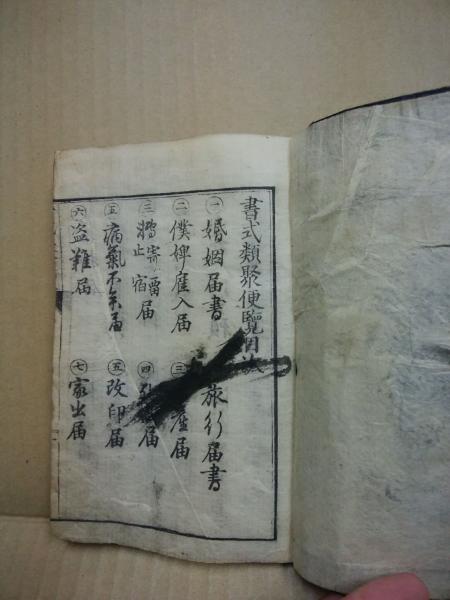 書式類聚便覽目
㊀婚姻届書 旅行届書
㊁僕婢雇入届 ㊂産届
㊂寄留止宿届 ㊃届
㊄病氣不参届 ㊄改印届
㊅盗難届 ㊆家出届